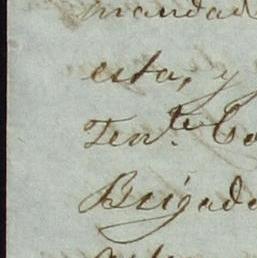 mandad
esta, y
Tente. Co
Brigada